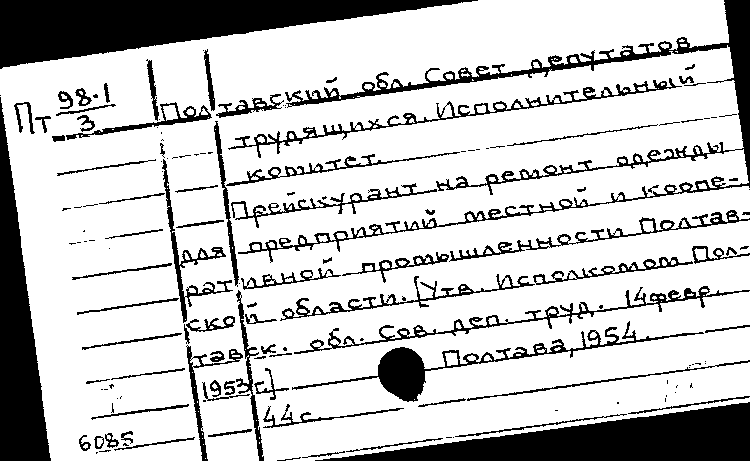 Пт 98·1/3 Полтавский обл. Совет депутатов
трудящихся. Исполнительный
комитет.
Прейскурант на ремонт одежды
для предприятий местной и коопе-
ративной промышленности Полтав-
ской области. [Утв. Исполкомом Пол-
тавск. обл. Сов. деп. труд. 14 февр.
1953 г.] Полтава, 1954.
44 с.
6085